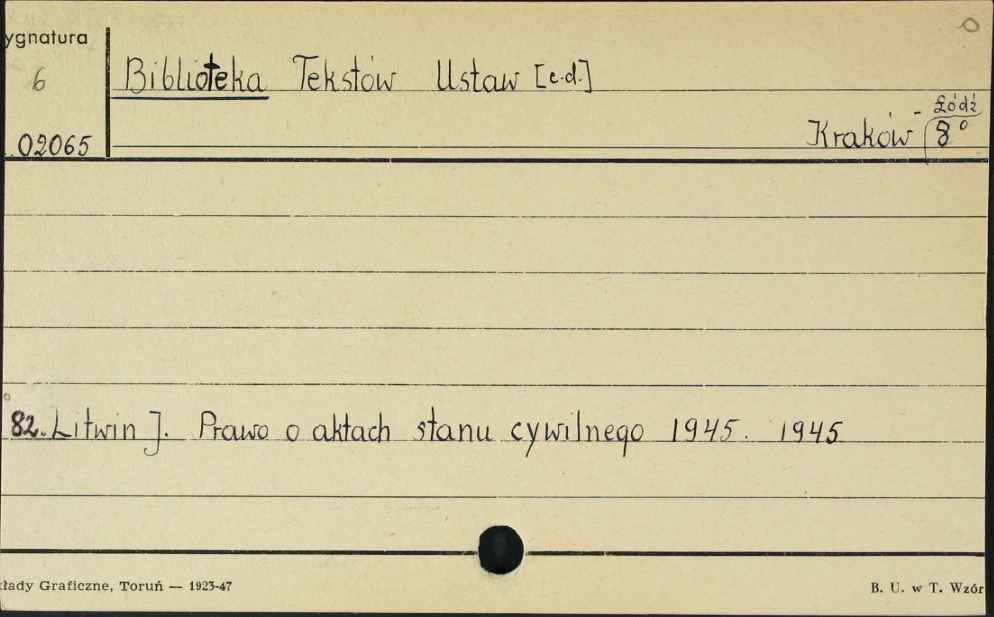 ygnatura
6
02065
Biblioteka Tekstów Ustaw [c.d.]
Kraków - Łódź
8°
82. Litwin J. Prawo o aktach stanu cywilnego 1945. 1945
łady Graficzne, Toruń — 1923-47
B. U. w T. Wzór